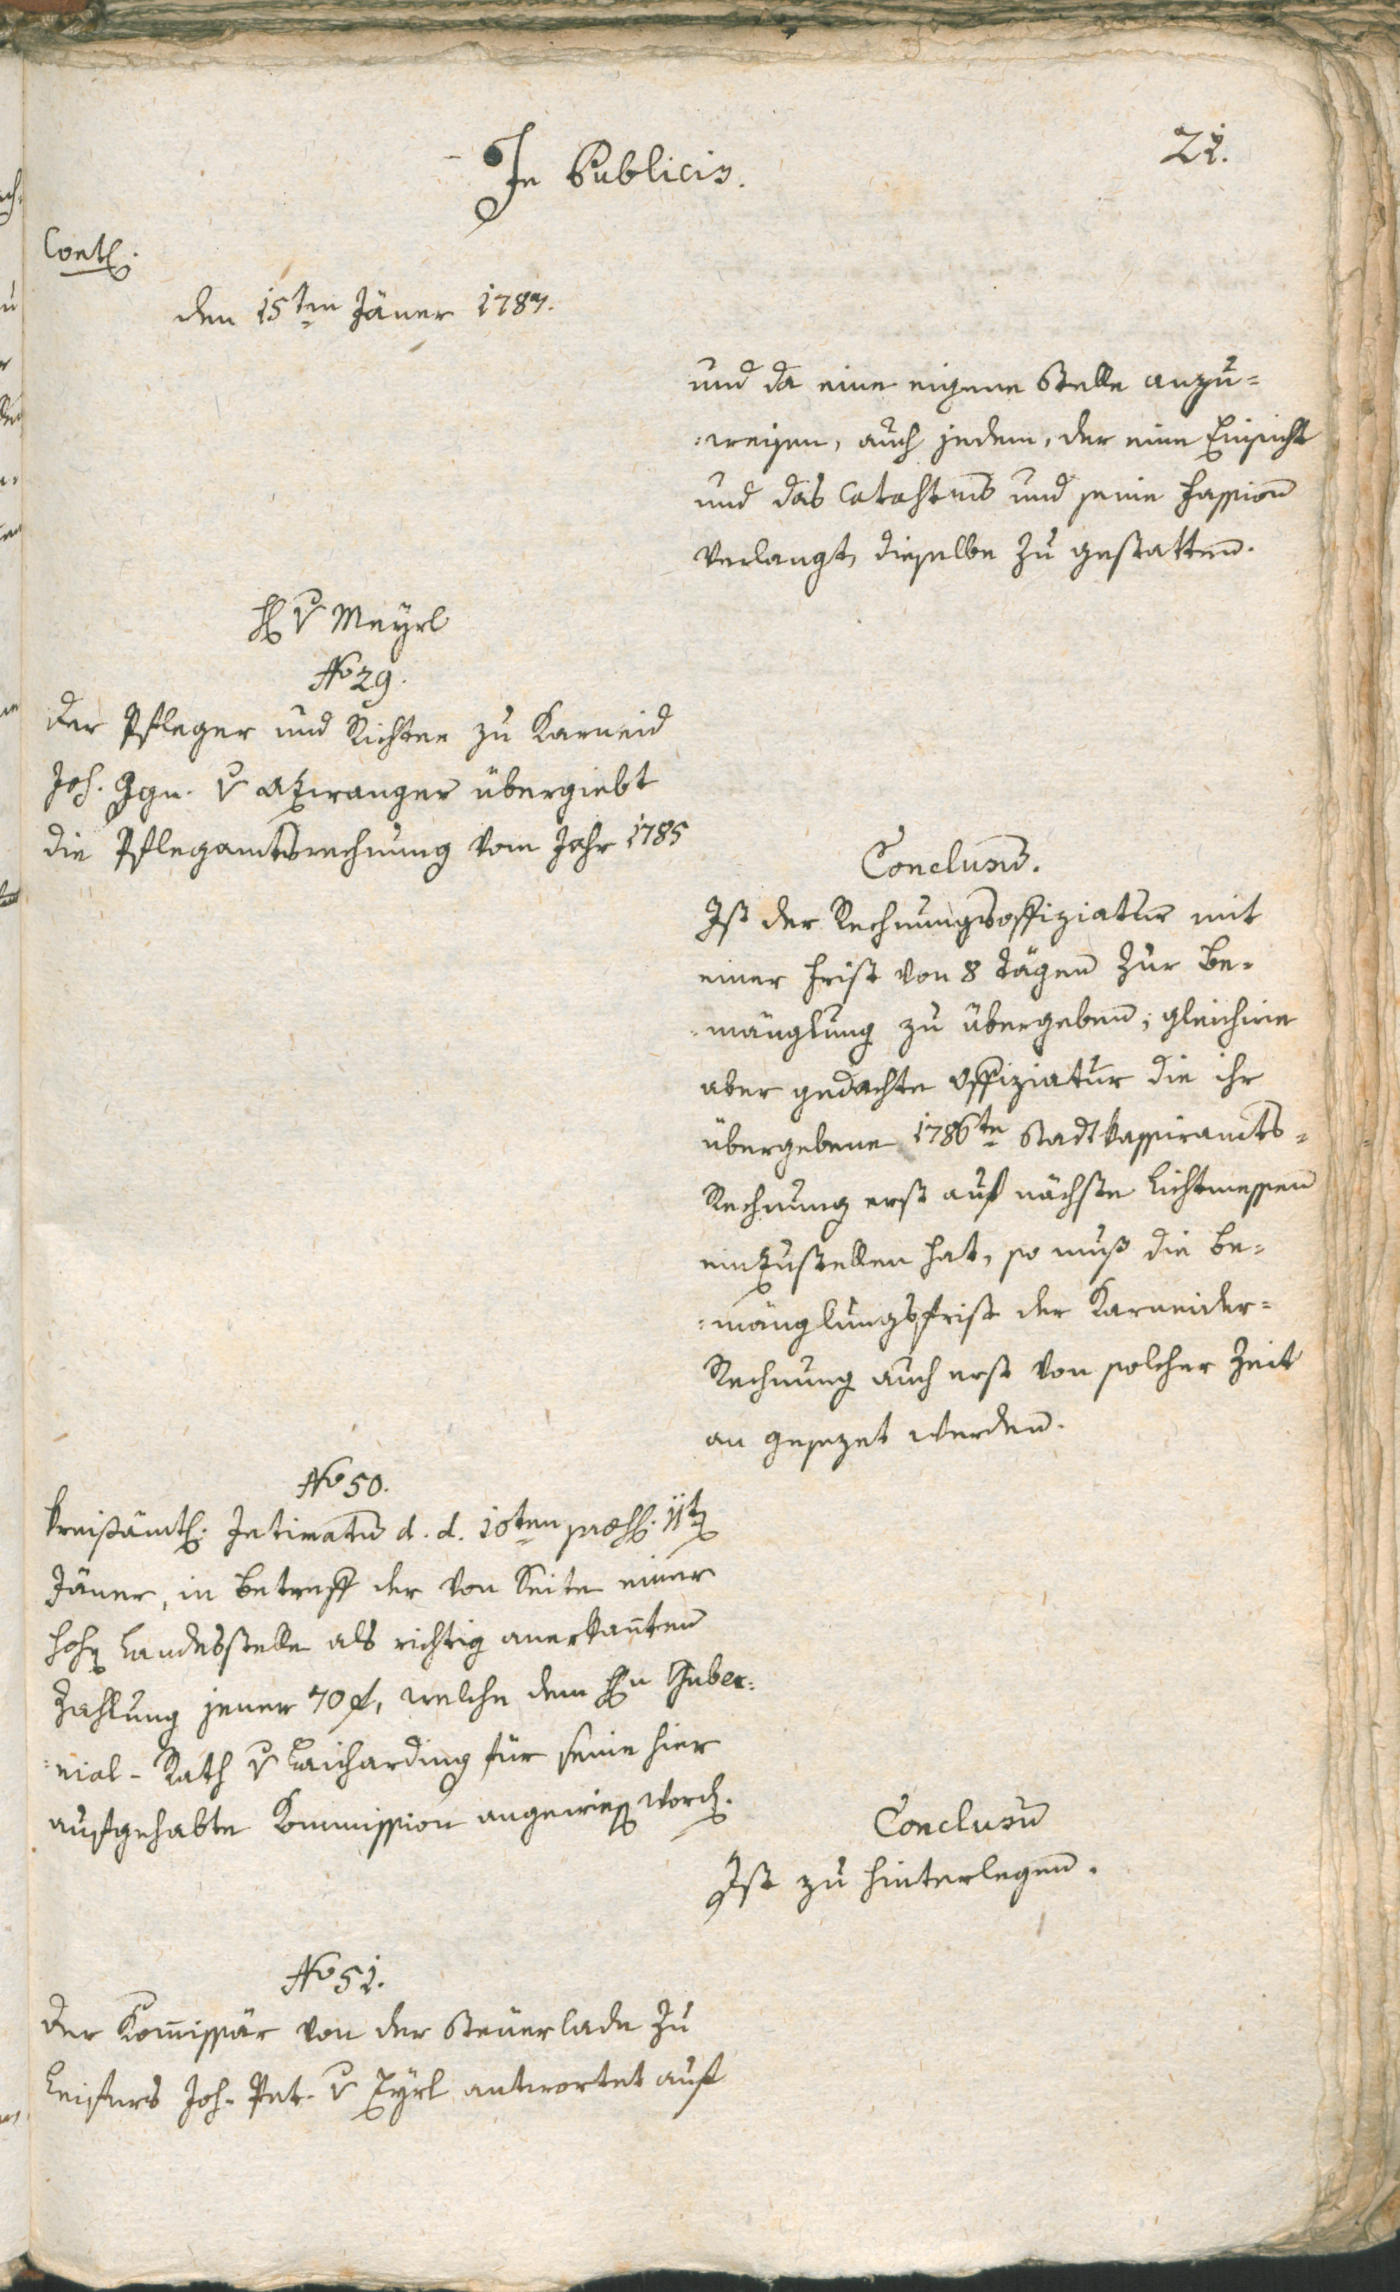 In Publicis.
21.
Contl.
den 15ten Jäner 1787.
und da eine eigene Stelle anzu=
=weisen, auch jedem, der eine Einsicht
und das Catastrum und seine Fassion
verlangt, dieselbe zu gestatten.
H v Mayrl
No 29.
Der Pfleger und Richter zu Karneid
Joh. Ign. v Atzwanger übergiebt
die Pflegamtsrechnung vom Jahr 1785
Conclusum.
Ist der Rechnungsoffiziatur mit
einer Frist von 8 Tägen zur Be=
=mänglung zu übergeben; gleichwie
aber gedachte Offiziatur die ihr
übergebene 1786te Stadtkassiramts=
Rechnung erst auf nächste Lichtmessen
einzustellen hat, so muß die Be=
=mänglungsfrist der Karneider=
Rechnung auch erst von solcher Zeit
an gesezet werden.
No 50.
Kreisämtl. Intimatum d. d. 10ten præs. 11t
Jäner, in Betreff der von Seite einer
hohen Landesstelle als richtig anerkañten
Zahlung jener 70 f, welche dem Hn Guber=
=nial-Rath v Laicharding für seine hier
aufgehabte Kommission angewiesen worden.
Conclusum
Ist zu hinterlegen.
No 51.
Der Kom̄issär von der Steuerlade zu
Leifers Joh. Pat. v Eyrl antwortet auf